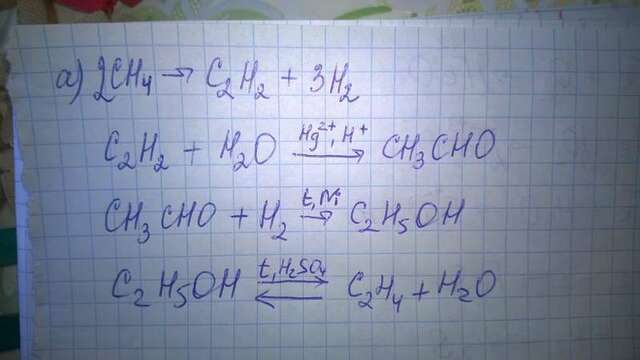 а) 2CH₄ → C₂H₂ + 3H₂
C₂H₂ + H₂O —Hg²⁺, H⁺→ CH₃CHO
CH₃CHO + H₂ —t, Ni→ C₂H₅OH
C₂H₅OH ⇄ t, H₂SO₄ C₂H₄ + H₂O